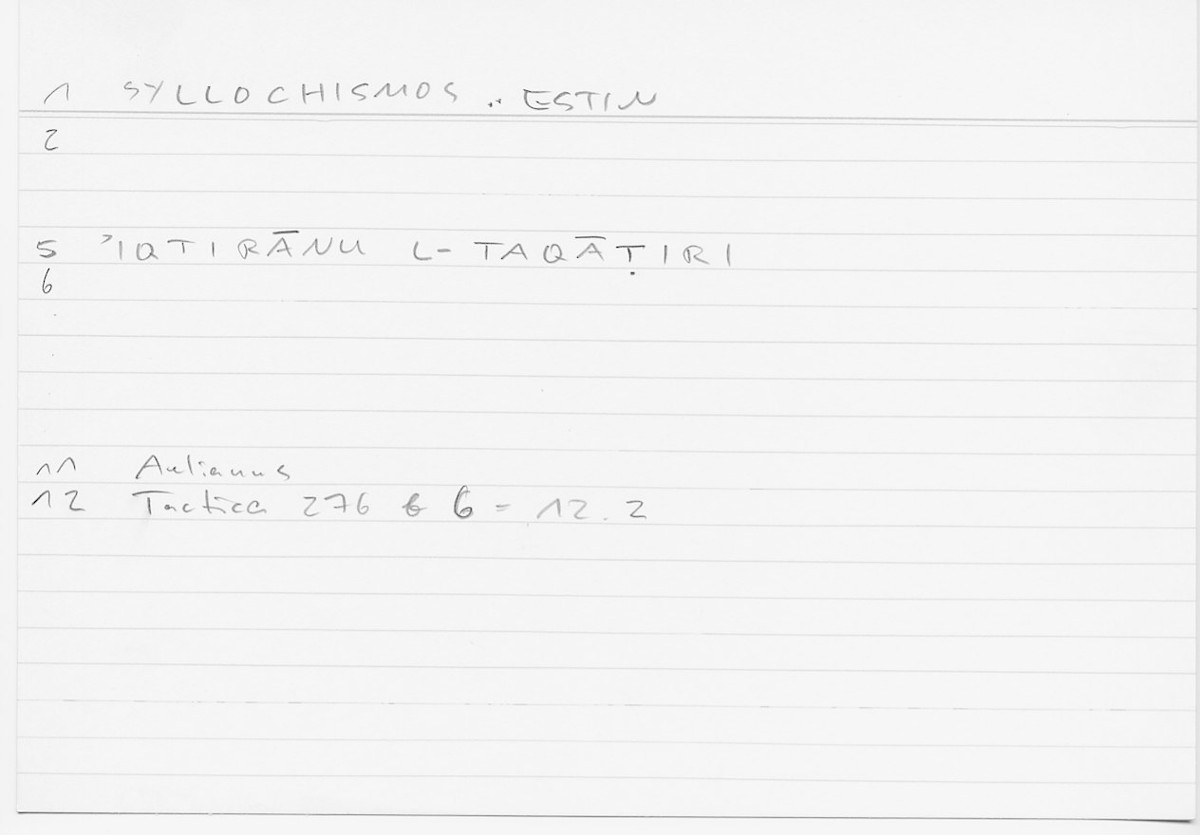 1 SYLLOCHISMOS .. ESTIN
2
5 ʾIQTIRĀNU L-TAQĀṬIRI
6
11 Aelianus
12 Tactica 276 6 = 12.2